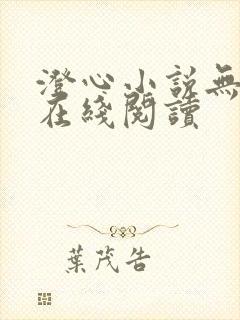 澄心小説無
在綫閱讀
葉茂告